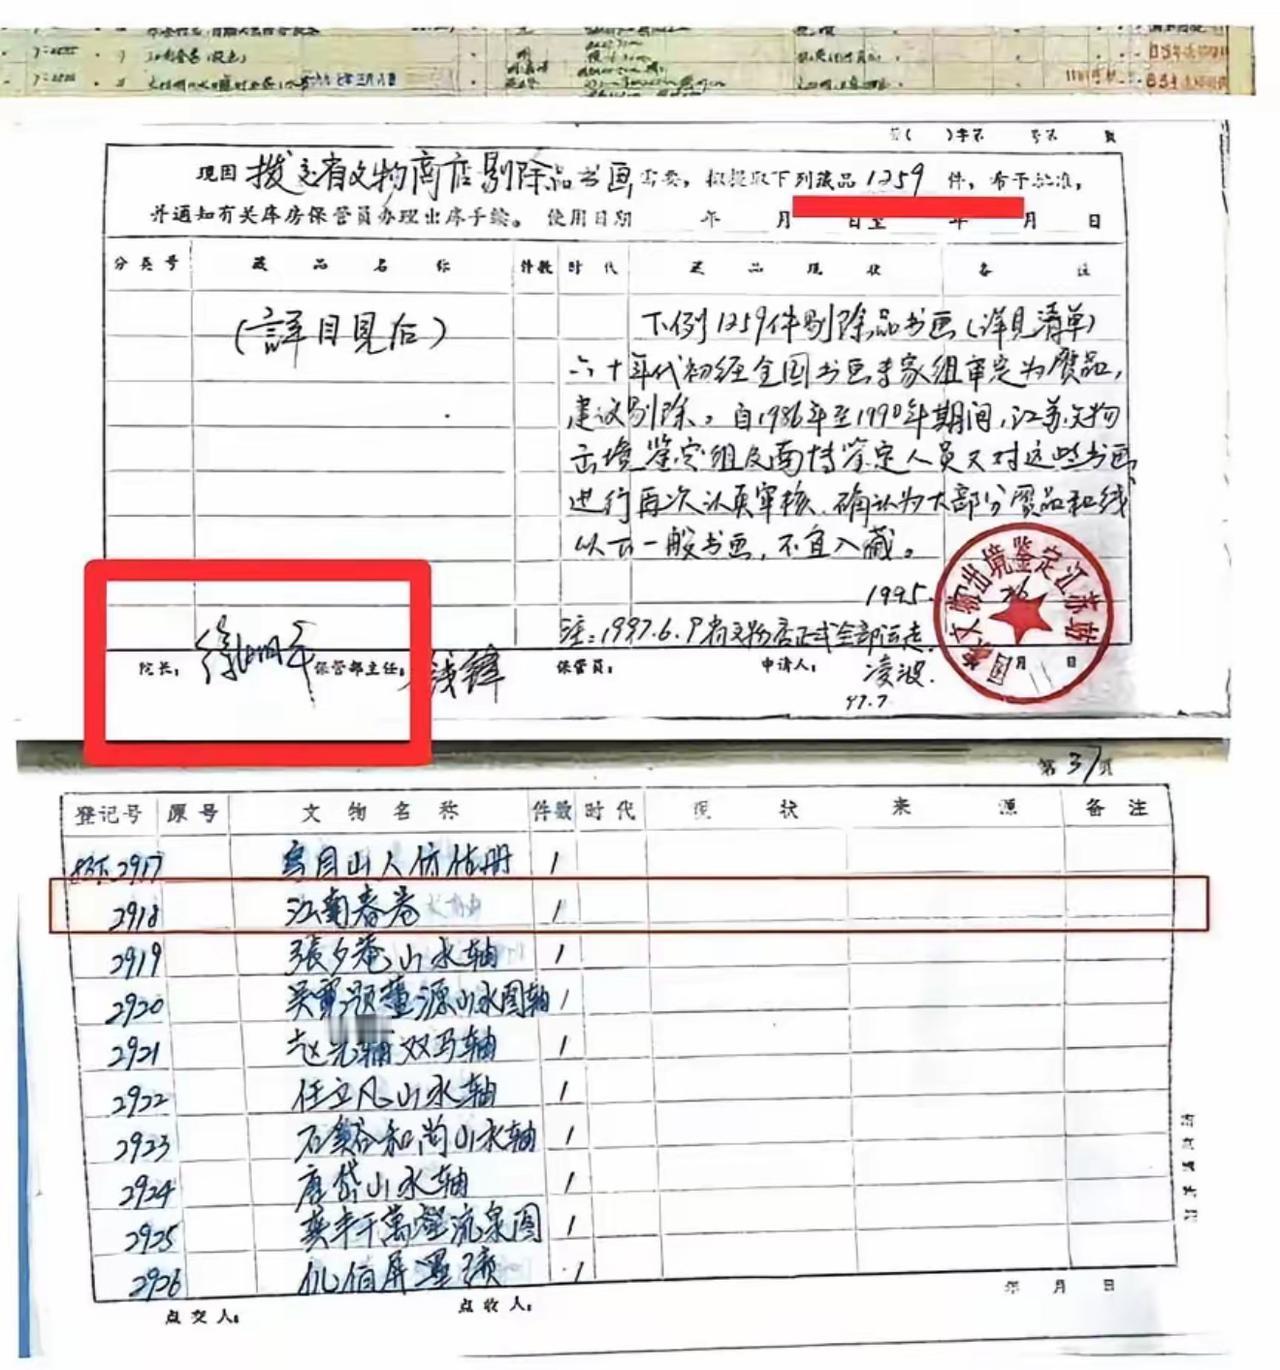 江南春卷
第( )字第 号第 页
现因 拨交省文物商店剔除品书画 需要，拟提取下列藏品 1259 件，希予批准，
并通知有关库房保管员办理出库手续。 使用日期 年 月 日至 年 月 日
分类号 藏品名称 件数 时代 藏品现状 备注
（詳目見后） 下例1259件剔除品书画（详見清单）
六十年代初经全国书画专家组审定为赝品，
建议剔除。自1986年至1990年期间，江苏文物
出境鉴定组及南博鉴定人员又对这些书画
进行再次认真审核，确认为大部分赝品和线
以下一般书画，不宜入藏。
1995.
注：1997.6.9省文物店正式全部运走
院长： 徐湖平 保管部主任： 钱锋 保管员： 申请人： 凌波. 月 日
97.7
国家文物出境鉴定江苏站
第 31 页
登记号 原号 文物名称 件数 时代 现状 来源 备注
2917 乌目山人仿古册 1
2918 江南春卷 1
2919 張夕菴山水轴 1
2920 吴寬题董源山水图轴 1
2921 赵元 双马轴 1
2922 任立凡山水轴 1
2923 和尚山水轴 1
2924 唐岱山水轴 1
2925 千萬壑流泉图 1
2926 屏 1
年 月 日
点交人： 点收人：